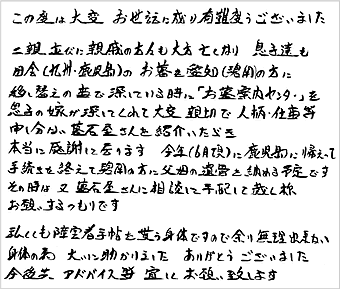 この度は大変 お世話に成り有難うございました
二親並びに親戚の方々も大方亡くなり 息子達も
田舎(九州・鹿児島)の お墓を愛知(碧南)の方に
移し替えの歯で探している時に「お墓案内センター」を
息子の嫁が探してくれて大変 親切で人柄・仕事等
申し分ない 墓石屋さんを紹介いただき
本当に感謝して居ります 今年(6月頃)に鹿児島に帰えって
手続きを終えて碧南の方に父母の遺骨を納める予定です
その時は又墓石屋さんに相談して手配して 致し称
お願いするつもりです
私くしも障害者手帖を貰う身体ですので余り無理出来ない
身体の為 大いに助かりました ありがとうございました
今後共、アドバイス等 宜しくお願い致します